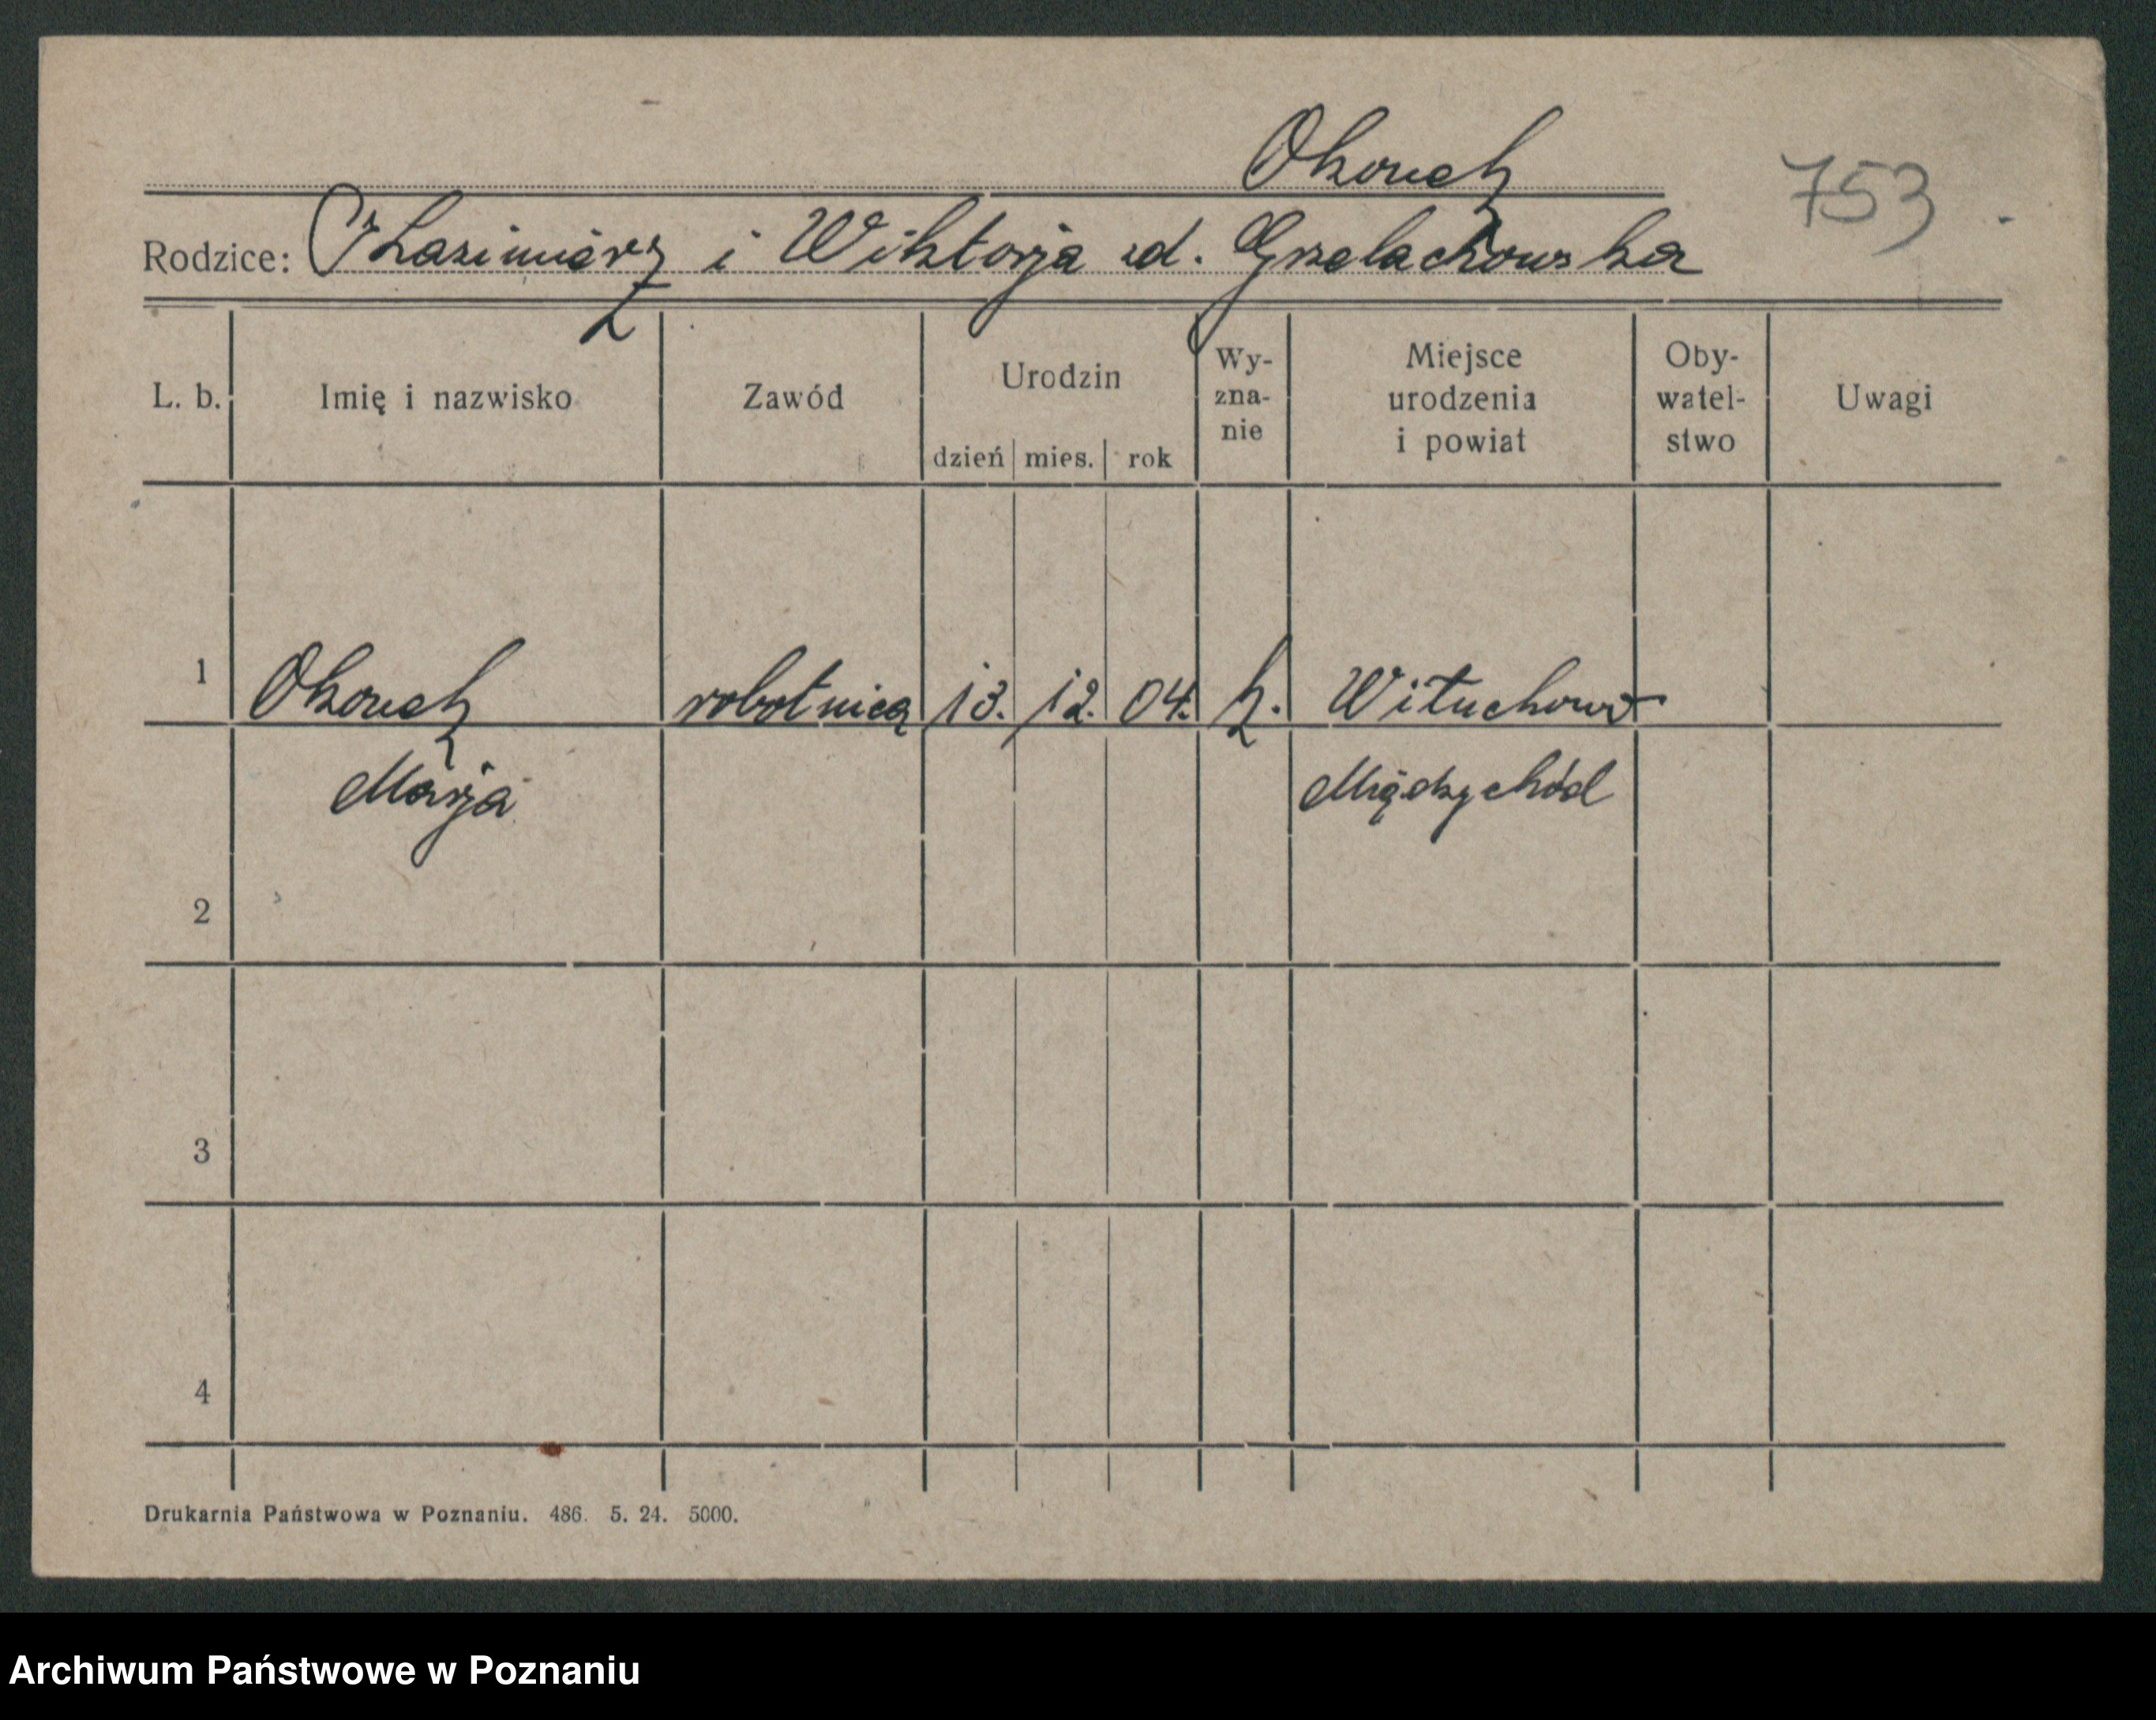 Okonek
753
Rodzice: Kazimierz i Wiktorja zd. Grzelachowska
L. b. Imię i nazwisko Zawód Urodzin dzień mies. rok Wy-zna-nie Miejsce urodzenia i powiat Oby-watel-stwo Uwagi
1 Okonek robotnica 13. 12. 04. k. Wituchowo
Marja Międzychód
2
3
4
Drukarnia Państwowa w Poznaniu. 486. 5. 24. 5000.
Archiwum Państwowe w Poznaniu